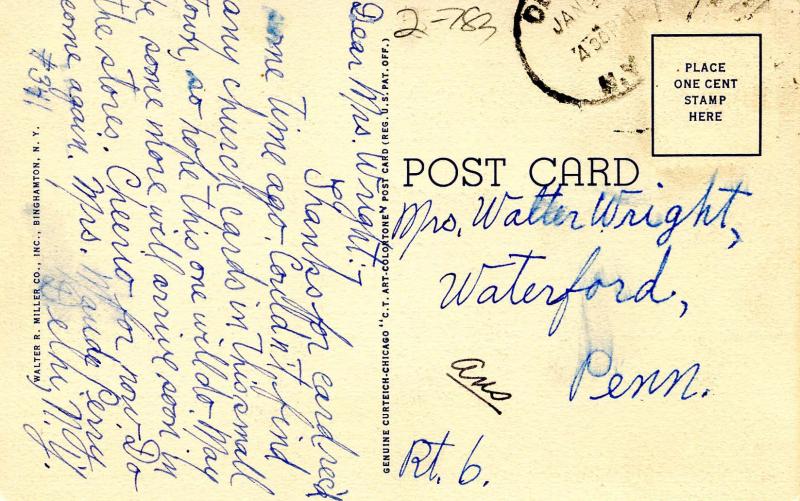 Dear Mrs. Wright:
Thanks for card rec'd
some time ago. Couldn't find
any church cards in this small
town, so hope this one will do. May
be some more will arrive soon in
the stores. Cheerio for now. Do
come again. Mrs. Maude Perry
Delhi, N.Y.
#341
WALTER R. MILLER CO., INC., BINGHAMTON, N. Y.
GENUINE CURTEICH-CHICAGO "C.T. ART-COLORTONE" POST CARD (REG. U.S. PAT. OFF.)
2-783
JAN
4 30 PM
N.Y.
PLACE
ONE CENT
STAMP
HERE
POST CARD
Mrs. Walter Wright,
Waterford,
Penn.
ans
Rt. 6.